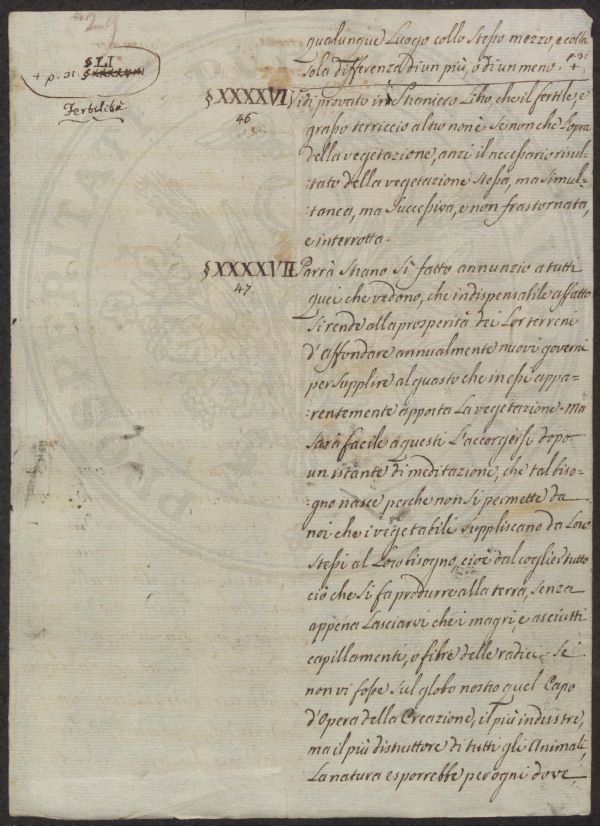 29
§ LI
+ p. 31. § XXXXVII
Fertilità
qualunque Luogo collo stesso mezzo, e colla
sola differenza di un più, o di un meno. p. 31 +
§ XXXXVI Vidi provato in Straniero Libro, che il fertile, e
46
grasso terriccio altro non è se non che l'opra
della vegetazione, anzi il necessario risul-
tato della vegetazione stessa, ma simul-
:tanea, ma successiva, e non frastornata,
e interrotta.
§ XXXXVII Parrà strano sì fatto annunzio a tutti
47
quei che vedono, che indispensabile affatto
si rende alla prosperità dei Lor terreni
d'affondare annualmente nuovi governi
per supplire al guasto che in essi appa=
:rentemente apporta La vegetazione. Ma
sarà facile a questi L'accorgersi dopo
un istante di meditazione, che tal biso-
:gno nasce perche non si permette da
noi che i vegetabili suppliscano da Loro
stessi al Loro bisogno, cioè dal coglier tutto
ciò che si fa produrre alla terra, senza
appena Lasciarvi che i magri, e asciutti
capillamenti, o fibre delle radici. Se
non vi fosse sul globo nostro quel Capo
d'Opera della Creazione, il più industre,
ma il più distruttore di tutti gli Animali,
La natura esporrebbe per ogni dove,